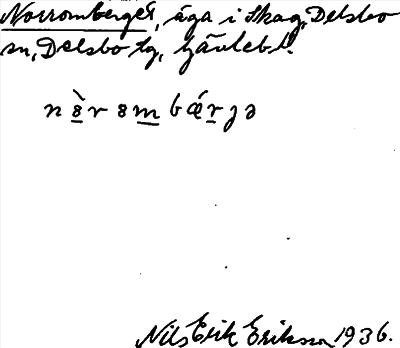 Norromberget, äga i Skog, Delsbo
sn, Delsbo tg, Gävlebl.
n ö̀ r ɞ m b ǽ r j ə
Nils Erik Eriksson 1936.